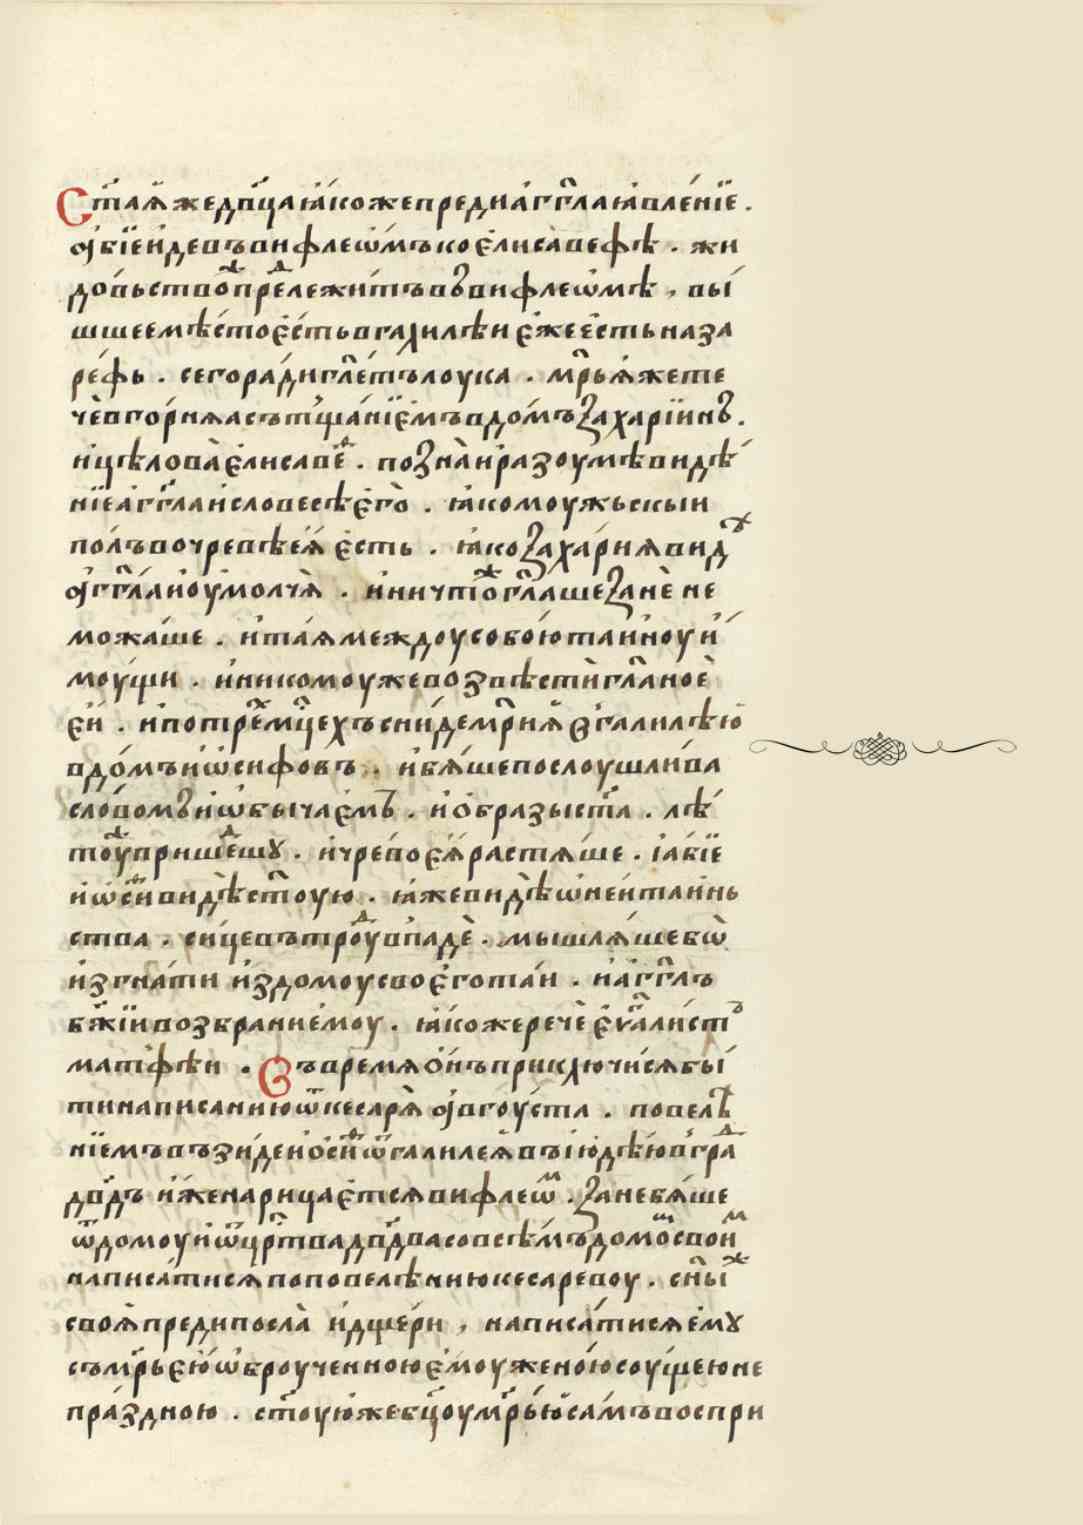 Ст҃аꙗ же дв҃ца ꙗкоже преди а҆гг҃ла ꙗвле́нїе .
а҆бїе и҆де въ виѳлеѡ́мъ ко є҆лиса́веѳѣ . жи
до́вьство́ж прⷣележи́тъ во виѳлеѡмѣ , вы́
шшее мѣ́сто є҆сть в галиле́и є҆же єсть наза
ре́ѳь . сего ра́ди гл҃етъ лоука . мр҃ьꙗ же те
чѐ в го́рнѧа съ тща́нїемъ в до́мъ заха́рїинъ .
и҆ цѣлова̀ є҆лисавеⷴ . позна̀ и҆ разоумѣ видѣ́
нїе а҆гг҃ла и҆ словесѣ є҆го̀ . ꙗко моужьскыи
по́лъ во чревѣ еꙗ̀ є҆сть . ꙗко заха́рїѧ видⷯ
а҆гг҃ла и҆ оумолча̀ . и҆ ничтоⷤ гл҃аше занѐ не
можа́ше . и҆ та́ѧ между собо́ю таи́ноу и҆
моу́щи . и҆ никомоуже возвѣстѝ гл҃аноѐ
є҆и́ . и҆ по трⷯе мц҃ехъ сни́де мр҃иꙗ ѿ галилѣю
в до́мъ и҆ѡ́сифовъ . и҆ бѧ́ше послоушли́ва
сло́вомъ и҆ ѡ҆бычаемъ . и҆ о҆бразы ст҃а . лѣ́
тоуⷤ прише́дшꙋ . и҆ чре́во еꙗ̀ растѧ́ше . і҆а́бїе
и҆ѡ́сиⷴ видѣ ст҃оую . ꙗже видѣ ѡ҆ неи́ таи́нь
ства . си́цевъ троуⷣ впадѐ . мы́шлѧше бѡ̀
и҆згна́ти и҆з домоу своєго та́и . и҆ а҆гг҃лъ
бж҃їи возбрани є҆моу . ꙗкоже речѐ є҆ѵⷢ҇али́стъ
матѳѣи . Въ времѧ о҆́нъ приключи́сѧ бы́
ти написанию ѿ кесарѧ̀ а҆вгоу́ста . повелѣ́
нїемъ възи́де и҆о́сиⷴ ѿ галилеꙗ̀ въ і҆юдѣ́ю в граⷣ
дв҃дъ и҆же нарицае́тсѧ виѳлеѡⷨ . зане бѧ́ше
ѿ домоу и҆ ѿ црⷭ҇тва дв҃два со всѣ́мъ домоⷨ своиⷨ
написа́тисѧ по повелѣнию кесаревоу . сн҃ыⷤ
своꙗ̀ преди посла̀ и҆ дще́ри , написа́тисѧ є҆мꙋ
съ мр҃ьєю ѡ҆броученною є҆моу жено́ю соу́щею не
пра́здною . ст҃оую же бц҃оу мр҃ью са́мъ воспри